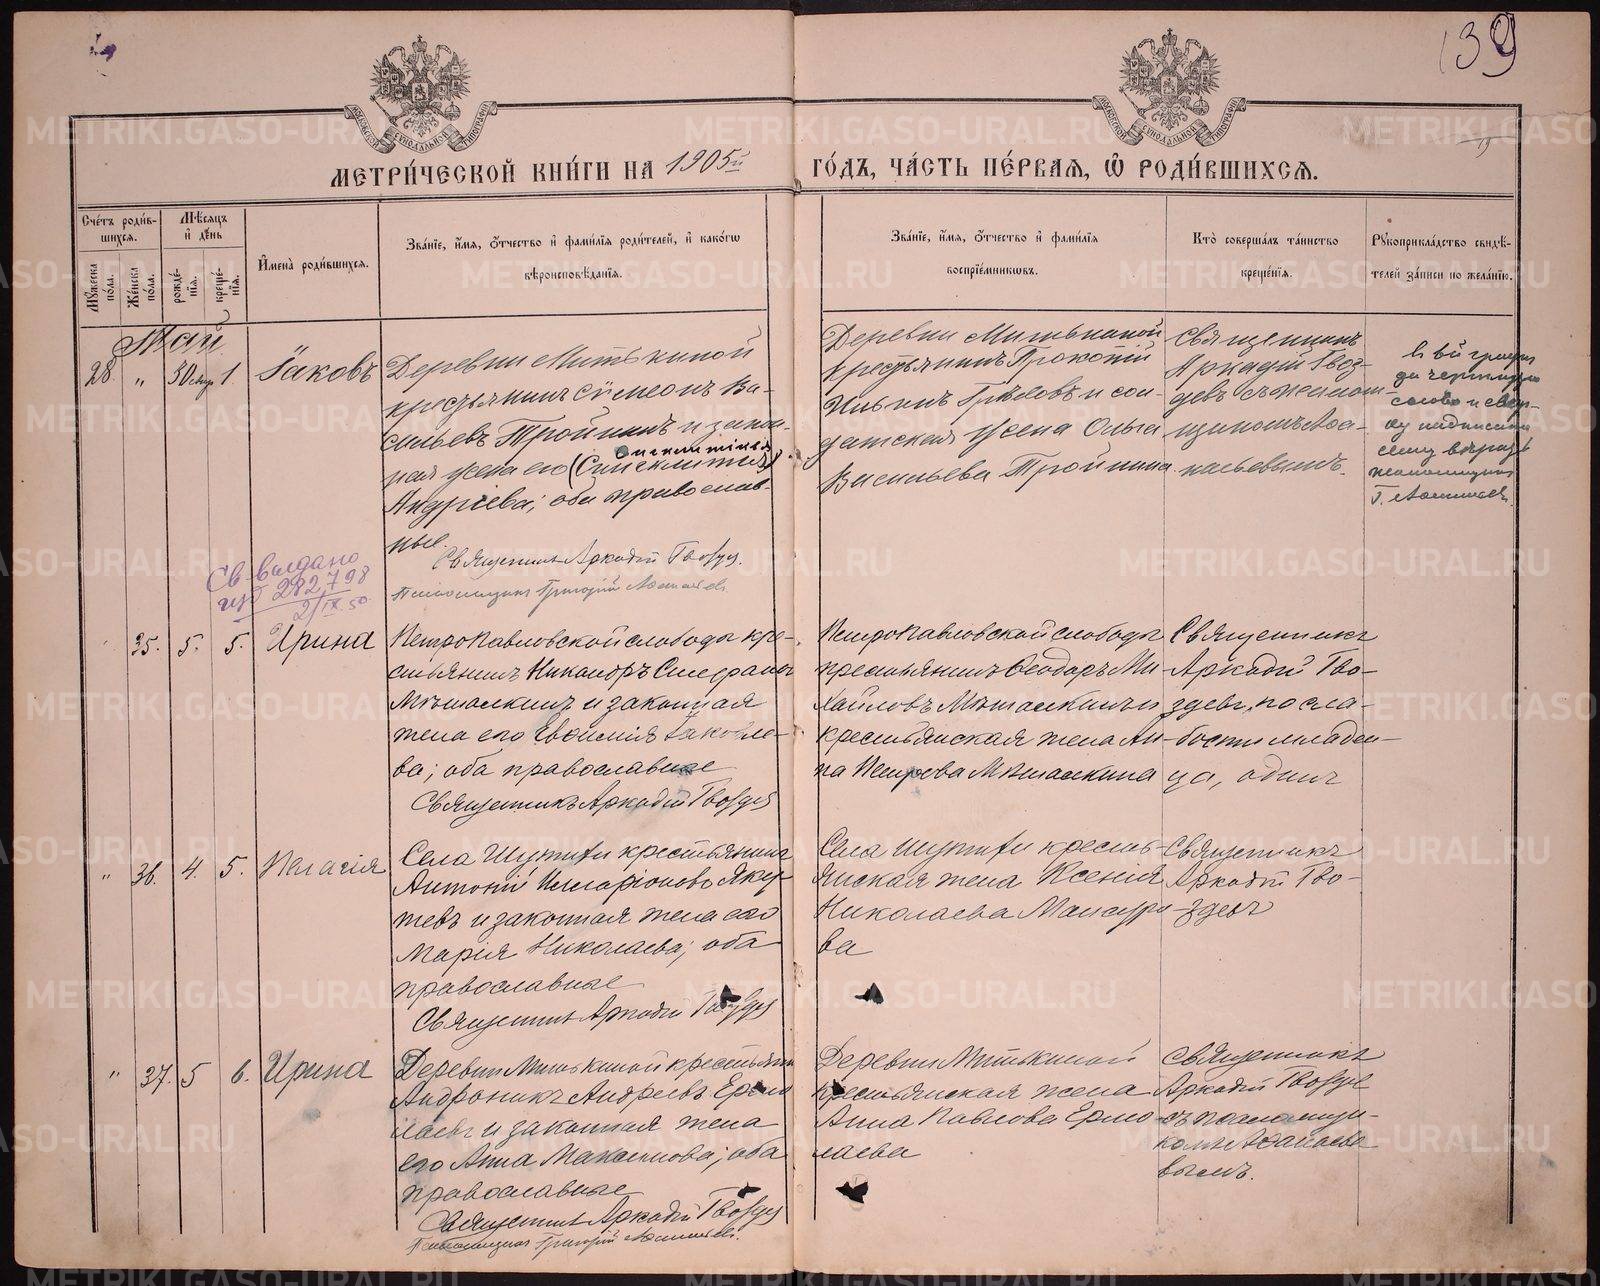 139
МЕТРИ́ЧЕСКОЙ КНИ́ГИ НА 1905й ГО́ДЪ, ЧА́СТЬ ПЕ́РВАЯ, Ѡ РОДИ́ВШИХСЯ.
Счéтъ роди́в-
шихся.
Мѣ́сяцъ
и҆ де́нь
Мꙋ́жеска
по́ла.
Же́нска
по́ла.
рожде́-
нїя.
креще́-
нїя.
И҆мена̀ роди́вшихся.
Зва́нїе, и҆́мя, ѻ҆́тчество и҆ фами́лїя роди́телей, и҆ како́гѡ
вѣроисповѣ́данїя.
Зва́нїе, и҆́мя, ѻ҆́тчество и҆ фами́лїя
воспрїе́мникѡвъ.
Кто̀ соверша́лъ та́инство
креще́нїя.
Рꙋкоприкла́дство свидѣ́-
телей за́писи по жела́нїю.
Май
28. " 30 апр 1. Іаковъ
Деревни Митькиной
крестьянинъ Сѵмеонъ Ва-
сильевъ Тройнинъ и закон-
ная жена его (Синклитія)
Андреева; оба православ-
ные.
Священникъ Аркадій Гвозд.
Псаломщикъ Григорій
Деревни Митькиной
крестьянинъ Прокопій
Ильинъ Грѣховъ и сол-
датская жена Ольга
Васильева Тройнина
Священникъ
Аркадій Гвоз-
девъ съ псалом-
щикомъ Аѳа-
насьевымъ.
Св. выдано
282798
2/IX 50
35. 5. 5. Ирина
Петропавловской слободы кре-
стьянинъ Никаноръ Стефанов
Мѣшалкинъ и законная
жена его Евфимія Іаковле-
ва; оба православные
Священникъ Аркадій Гвозде
Петропавловской слободы
крестьянинъ Ѳеодоръ Ми-
хайловъ Мѣшалкинъ и
крестьянская жена Ан-
на Петрова Мѣшалкина
Священникъ
Аркадій Гво-
здевъ, по сла-
бости младен-
ца, одинъ
" 36. 4. 5. Пелагія
Села крестьянинъ
Антоній Илларіоновъ Яку-
шевъ и законная жена его
Марія Николаева; оба
православные
Священникъ Аркадій Гвозде
Села крестья-
янская жена Ксенія
Николаева Мансуро-
ва
Священникъ
Аркадій Гво-
здевъ
" 37. 5 6. Ирина
Деревни Митькиной крестьянин
Андроникъ Андреевъ Ермо
лаевъ и законная жена
его Анна Максимова; оба
православные
Священникъ Аркадій Гвозде
Псаломщикъ Григорій
Деревни Митькиной
крестьянская жена
Анна Павлова Ермо-
лаева
Священникъ
Аркадій Гвозде
въ псаломщи-
комъ Аѳанасье-
вымъ.
METRIKI.GASO-URAL.RU